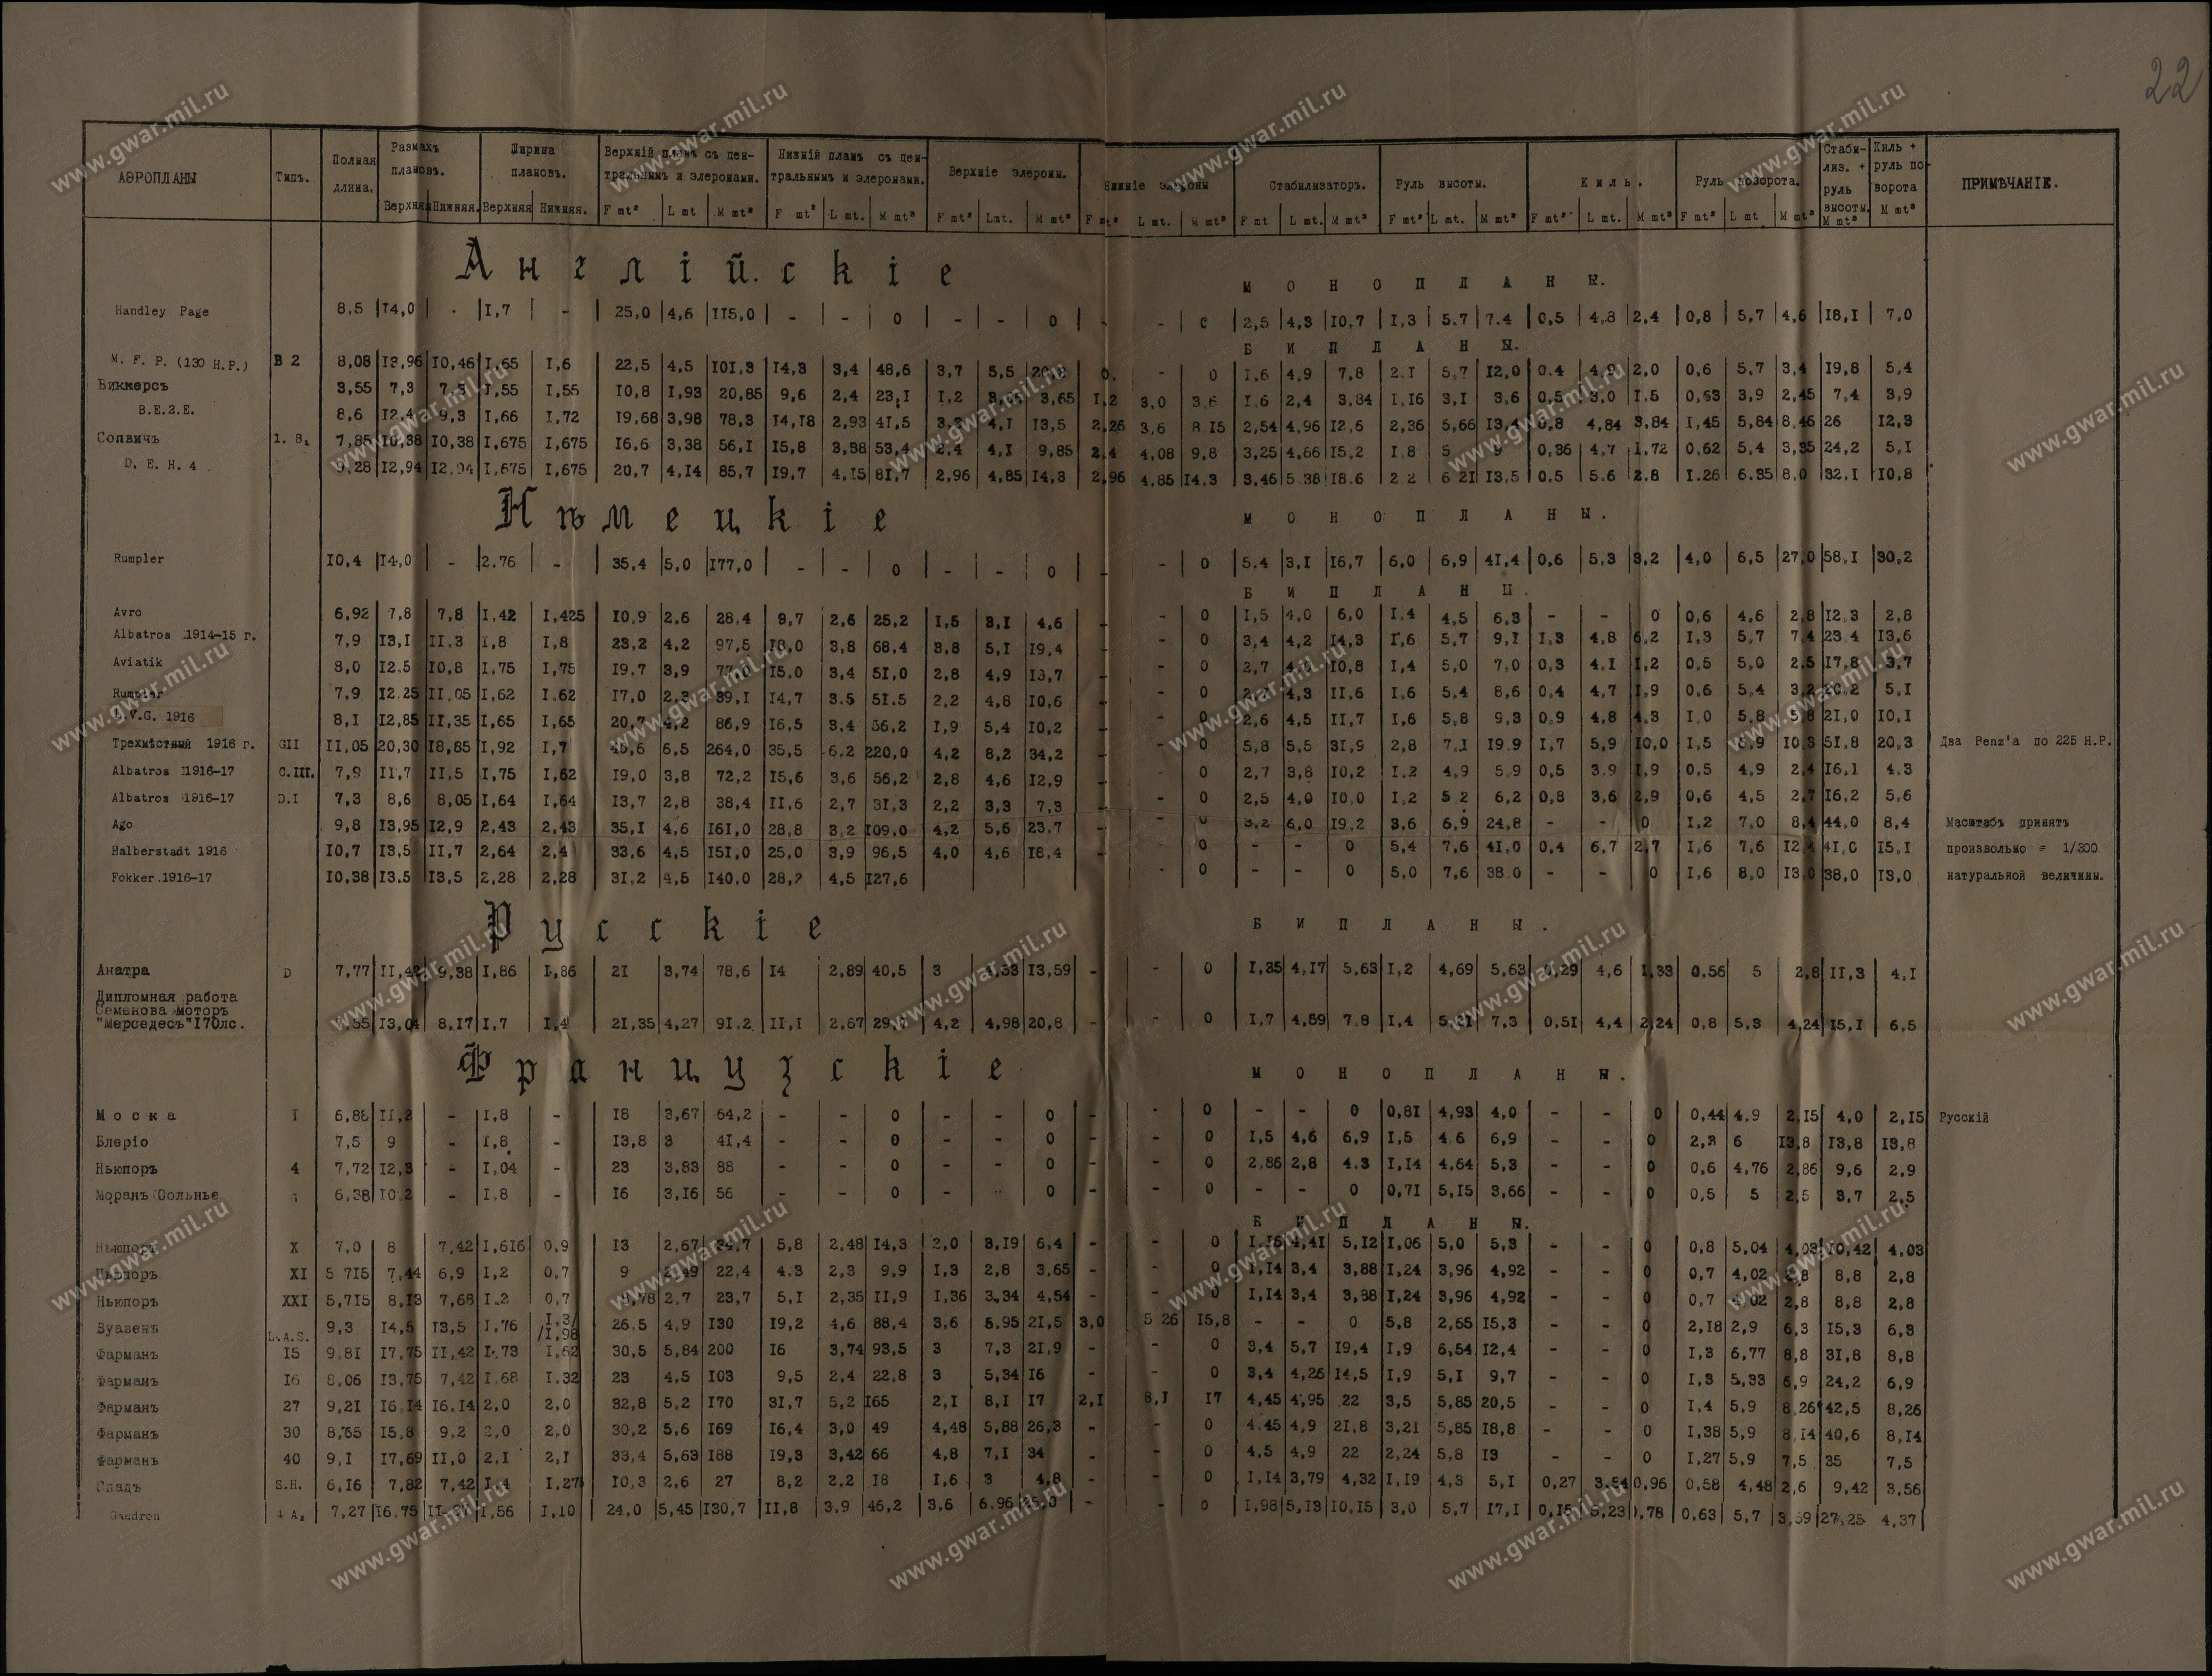 22
АЭРОПЛАНЫ Типъ. Полная длина. Размахъ плановъ. Верхняя Нижняя. Ширина плановъ. Верхняя Нижняя. Верхній планъ съ цен-тральнымъ и элеронами. F mt² L mt M mt³ Нижній планъ съ цен-тральнымъ и элеронами. F mt² L mt. M mt³ Верхніе элероны. F mt² Lmt. M mt³ Нижніе элероны F mt² L mt. M mt³ Стабилизаторъ. F mt L mt. M mt³ Руль высоты. F mt² L mt. M mt³ Киль. F mt² L mt. M mt³ Руль поворота. F mt² L mt M mt³ Стаби-лиз. + руль высоты. M mt³ Киль + руль по-ворота M mt³ ПРИМѢЧАНІЕ.
Англійскіе МОНОПЛАНЫ.
Handley Page 8,5 14,0 - 1,7 - 25,0 4,6 115,0 - - 0 - - 0 - - 0 2,5 4,3 10,7 1,3 5.7 7.4 0,5 4,8 2,4 0,8 5,7 4,6 18,1 7,0
БИПЛАНЫ.
M. F. P. (130 H.P.) B 2 8,08 13,96 10,46 1,65 1,6 22,5 4,5 101,3 14,3 3,4 48,6 3,7 5,5 0. - 0 1,6 4,9 7,8 2.1 5,7 12,0 0.4 4,9 2,0 0,6 5,7 3,4 19,8 5,4
Виккерсъ 3,55 7,3 7,3 1,55 1,55 10,8 1,93 20,85 9,6 2,4 23,1 1,2 3,65 1,2 3,0 3,6 1,6 2,4 3,84 1,16 3,1 3,6 0,5 3,0 1.5 0,63 3,9 2,45 7,4 3,9
B.E.2.E. 8,6 12,4 9,3 1,66 1,72 19,68 3,98 78,3 14,18 2,93 41,5 4,1 13,5 2,26 3,6 8 15 2,54 4,96 12,6 2,36 5,66 13,4 0,8 4,84 3,84 1,45 5,84 8,46 26 12,3
Сопвичъ 1. B₁ 7,85 10,38 10,38 1,675 1,675 16,6 3,38 56,1 15,8 3,38 53,4 2,4 4,1 9,85 2,4 4,08 9,8 3,25 4,66 15,2 1,8 5 9 0,36 4,7 1,72 0,62 5,4 3,35 24,2 5,1
D. E. H. 4 9,28 12,94 12,94 1,675 1,675 20,7 4,14 85,7 19,7 4,15 81,7 2,96 4,85 14,3 2,96 4,85 14,3 3,46 5.38 18.6 2 2 6 21 13,5 0.5 5.6 2.8 1.26 6.35 8,0 32.1 10,8
Нѣмецкіе МОНОПЛАНЫ.
Rumpler 10,4 14,0 - 2,76 - 35,4 5,0 177,0 - - 0 - - 0 - - 0 5,4 3,1 16,7 6,0 6,9 41,4 0,6 5,3 3,2 4,0 6,5 27,0 58,1 30,2
БИПЛАНЫ.
Avro 6,92 7,8 7,8 1,42 1,425 10,9 2,6 28,4 9,7 2,6 25,2 1,5 3,1 4,6 - - 0 1,5 4,0 6,0 1,4 4,5 6,3 - - 0 0,6 4,6 2,8 12,3 2,8
Albatros 1914-15 г. 7,9 13,1 11,3 1,8 1,8 23,2 4,2 97,5 18,0 3,8 68,4 3,8 5,1 19,4 - - 0 3,4 4,2 14,3 1,6 5,7 9,1 1,3 4,8 6,2 1,3 5,7 7,4 23,4 13,6
Aviatik 8,0 12.5 10,8 1,75 1,75 19,7 3,9 77,0 15,0 3,4 51,0 2,8 4,9 13,7 - - 0 2,7 4,0 10,8 1,4 5,0 7,0 0,3 4,1 1,2 0,5 5,0 2,5 17,8 3,7
Rumpler 7,9 12.25 11,05 1,62 1.62 17,0 2,3 39,1 14,7 3.5 51.5 2,2 4,8 10,6 - - 0 4,3 11,6 1,6 5,4 8,6 0,4 4,7 1,9 0,6 5,4 3,2 20,2 5,1
L.V.G. 1916 8,1 12,85 11,35 1,65 1,65 20,7 4,2 86,9 16,5 3.4 56,2 1,9 5,4 10,2 - - 0 2,6 4,5 11,7 1,6 5,8 9,3 0,9 4,8 4,3 1,0 5,8 5,8 21,0 10,1
Трехмѣстный 1916 г. GII 11,05 20,30 18,85 1,92 1,7 40,6 6,5 264,0 35,5 6.2 220,0 4,2 8,2 34,2 - - 0 5,8 5,5 31,9 2,8 7,1 19.9 1,7 5,9 10,0 1,5 6,9 10,3 51,8 20,3 Два Benz'a по 225 H.P.
Albatros 1916-17 C.III. 7,9 11,7 11,5 1,75 1,62 19,0 3,8 72,2 15,6 3,6 56,2 2,8 4,6 12,9 - - 0 2,7 3,8 10,2 1,2 4,9 5,9 0,5 3,9 1,9 0,5 4,9 2,4 16,1 4,3
Albatros 1916-17 D.I 7,3 8,6 8,05 1,64 1,64 13,7 2,8 38,4 11,6 2,7 31,3 2,2 3,3 7,3 - - 0 2,5 4,0 10,0 1,2 5 2 6,2 0,8 3,6 2,9 0,6 4,5 2,7 16,2 5,6
Ago 9,8 13,95 12,9 2,43 2,43 35,1 4,6 161,0 28,8 3,2 109,0 4,2 5,6 23,7 - - 0 3,2 6,0 19,2 3,6 6,9 24,8 - - 0 1,2 7,0 8,4 44,0 8,4 Масштабъ принятъ
Halberstadt 1916 10,7 13,5 11,7 2,64 2,4 33,6 4,5 151,0 25,0 3,9 96,5 4,0 4,6 18,4 - - 0 - - 0 5,4 7,6 41,0 0,4 6,7 2,7 1,6 7,6 12,4 41,0 15,1 произвольно = 1/300
Fokker.1916-17 10,38 13.5 13,5 2,28 2,28 31,2 4,5 140,0 28,2 4,5 127,6 - 0 - - 0 5,0 7,6 38.0 - - 0 1,6 8,0 13,0 38,0 13,0 натуральной величины.
Русскіе БИПЛАНЫ.
Анатра D 7,77 11,42 9,38 1,86 1,86 21 3,74 78,6 14 2,89 40,5 3 4,53 13,59 - - 0 1,35 4,17 5,63 1,2 4,69 5,63 0,29 4,6 1,33 0,56 5 2,8 11,3 4,1
Дипломная работа
Семенова моторъ
"Мерседесъ"170лс. 13,04 8,17 1,7 1,4 21,35 4,27 91.2 11,1 2,67 4,2 4,98 20,8 - - 0 1,7 4,59 7,8 1,4 5,21 7,3 0,51 4,4 2,24 0,8 5,3 4,24 15,1 6,5
Французскіе МОНОПЛАНЫ.
Моска I 6,88 11,2 - 1,8 - 18 3,67 64,2 - - 0 - - 0 - - 0 - - 0 0,81 4,93 4,0 - - 0 0,44 4,9 2,15 4,0 2,15 Русскій
Блеріо 7,5 9 - 1,8 - 13,8 3 41,4 - - 0 - - 0 - - 0 1,5 4,6 6,9 1,5 4.6 6,9 - - 0 2,3 6 13,8 13,8 13,8
Ньюпоръ 4 7,72 12,3 - 1,04 - 23 3,83 88 - - 0 - - 0 - - 0 2,86 2,8 4.3 1,14 4,64 5,3 - - 0 0,6 4,76 2,86 9,6 2,9
Моранъ Сольнье G 6,38 10,2 - 1,8 - 16 3,16 56 - - 0 - - 0 - - 0 - - 0 0,71 5,15 3,66 - - 0 0,5 5 2,5 3,7 2,5
БИПЛАНЫ.
Ньюпоръ X 7,0 8 7,42 1,616 0,9 13 2,67 34,7 5,8 2,48 14,3 2,0 3,19 6,4 - - 0 1,16 4,41 5,12 1,06 5,0 5,3 - - 0 0,8 5,04 4,03 10,42 4,03
Ньюпоръ XI 5 715 7,44 6,9 1,2 0,7 9 2,49 22,4 4.3 2,3 9,9 1,3 2,8 3,65 - - 0 1,14 3,4 3,88 1,24 3,96 4,92 - - 0 0,7 4,02 2,8 8,8 2,8
Ньюпоръ XXI 5,715 8,13 7,68 1.2 0,7 8,78 2,7 23,7 5,1 2,35 11,9 1,36 3,34 4,54 - - 0 1,14 3,4 3,88 1,24 3,96 4,92 - - 0 0,7 4,02 2,8 8,8 2,8
Вуазенъ L.A.S. 9,3 14,5 13,5 1,76 1,3/ /1,98 26,5 4,9 130 19,2 4,6 88,4 3,6 5,95 21,5 3,0 5 26 15,8 - - 0 5,8 2,65 15,3 - - 0 2,18 2,9 6,3 15,3 6,3
Фарманъ 15 9,81 17,75 11,42 1,73 1,62 30,5 5,84 200 16 3,74 93,5 3 7,3 21,9 - - 0 3,4 5,7 19,4 1,9 6,54 12,4 - - 0 1,3 6,77 8,8 31,8 8,8
Фарманъ 16 8,06 13,75 7,42 1,68 1,32 23 4,5 103 9,5 2,4 22,8 3 5,34 16 - - 0 3,4 4,26 14,5 1,9 5,1 9,7 - - 0 1,3 5,33 6,9 24,2 6,9
Фарманъ 27 9,21 16,14 16.14 2,0 2,0 32,8 5,2 170 31,7 5,2 165 2,1 8,1 17 2,1 8,1 17 4,45 4,95 22 3,5 5,85 20,5 - - 0 1,4 5,9 8,26 42,5 8,26
Фарманъ 30 8,65 15,8 9,2 2,0 2,0 30,2 5,6 169 16,4 3,0 49 4,48 5,88 26,3 - - 0 4,45 4,9 21,8 3,21 5,85 18,8 - - 0 1,38 5,9 8,14 40,6 8,14
Фарманъ 40 9,1 17,69 11,0 2,1 2,1 33,4 5,63 188 19,3 3,42 66 4,8 7,1 34 - - 0 4,5 4,9 22 2,24 5,8 13 - - 0 1,27 5,9 7,5 35 7,5
Спадъ S.H. 6,16 7,82 7,42 1,4 1,27 10,3 2,6 27 8,2 2,2 18 1,6 3 4,8 - - 0 1,14 3,79 4,32 1,19 4,3 5,1 0,27 3.54 0,96 0,58 4,48 2,6 9,42 3,56
Gaudron 4 A₂ 7,27 16,75 1,56 1,10 24,0 5,45 130,7 11,8 3,9 46,2 3,6 6,96 25,0 - - 0 1,98 5,13 10,15 3,0 5,7 17,1 0,15 5,23 0,78 0,63 5,7 3,59 27,25 4,37